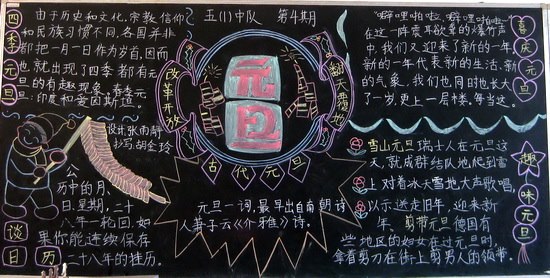 五(1)中队 第4期
四季元旦
由于历史和文化、宗教信仰
和民族习惯不同,各国并非
都把一月一日作为岁首,因而
也就出现了四季都有元
旦的有趣现象。春季元
旦:印度和爱因斯坦。
设计:张雨静
抄写:胡全玲
公
历中的月、
日、星期,二十
八年一轮回,如
果你能连续保存
二十八年的挂历。
谈日历
改革开放
元旦
翻天覆地
古代元旦
元旦一词,最早出自南朝诗
人萧子云《介雅》诗。
喜庆元旦
“噼哩啪啦,噼哩啪啦”
在这一阵震耳欲聋的爆竹声
中,我们又迎来了新的一年,
新的一年代表新的生活、新
的气象,我们也同时也长大
了一岁,更上一层楼、每当这。
雪山元旦 瑞士人在元旦这
天,就成群结队地爬到雪
上 对着冰天雪地大声歌唱,
以示送走旧年,迎来新
年。剪带元旦 德国有
些地区的妇女在过元旦时,
拿着剪刀在街上剪男人的领带。
趣味元旦